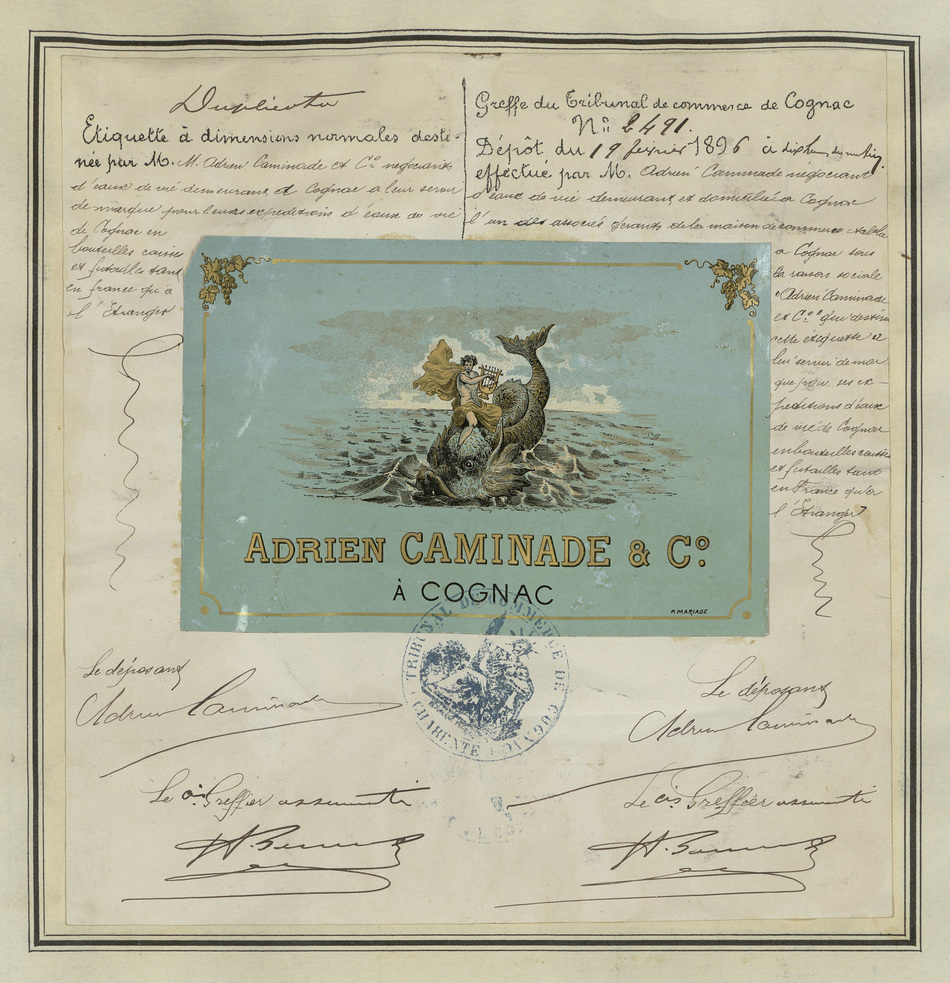 Duplicata
Etiquette à dimensions normales desti-
née par M. M. Adrien Caminade et Cie négociants
d'eaux de vie demeurant à Cognac a leur servir
de marque pour leurs expéditions d'eaux de vie
de Cognac en
bouteilles caisses
et futailles tant
en france qu'à
l'Etranger
Greffe du Tribunal de commerce de Cognac
No 2491.
Dépôt du 19 février 1896 à du matin,
effectué par M. Adrien Caminade négociant
d'eaux de vie demeurant et domicilié à Cognac
l'un des associés gérants de la maison de commerce établie
a Cognac sous
la raison sociale
"Adrien Caminade
et Co" qui destine
cette étiquette a
lui servir de mar
que pour ses ex-
péditions d'eaux
de vie de Cognac
en bouteilles caisses
et futailles tant
en France qu'à
l'Etranger
ADRIEN CAMINADE & Co
À COGNAC
R. MARIAGE
TRIBUNAL DE COMMERCE DE COGNAC
CHARENTE
Le déposant
Adrien Caminade
Le déposant
Adrien Caminade
Le cis Greffier assermenté
Le cis Greffier assermenté